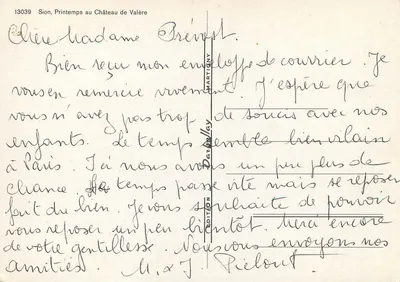 13039 Sion, Printemps au Château de Valère
Chère Madame Prévost.
Bien reçu mon enveloppe de courrier. Je
vous en remercie vivement. J'espère que
vous n'avez pas trop de soucis avec nos
enfants. Le temps semble bien vilain
à Paris. Ici nous avons un peu plus de
chance. Le temps passe vite mais se reposer
fait du bien. Je vous souhaite de pouvoir
vous reposer un peu bientôt. Merci encore
de votre gentillesse. Nous vous envoyons nos
amitiés. M. & J.
EDITIONS Darbellay MARTIGNY